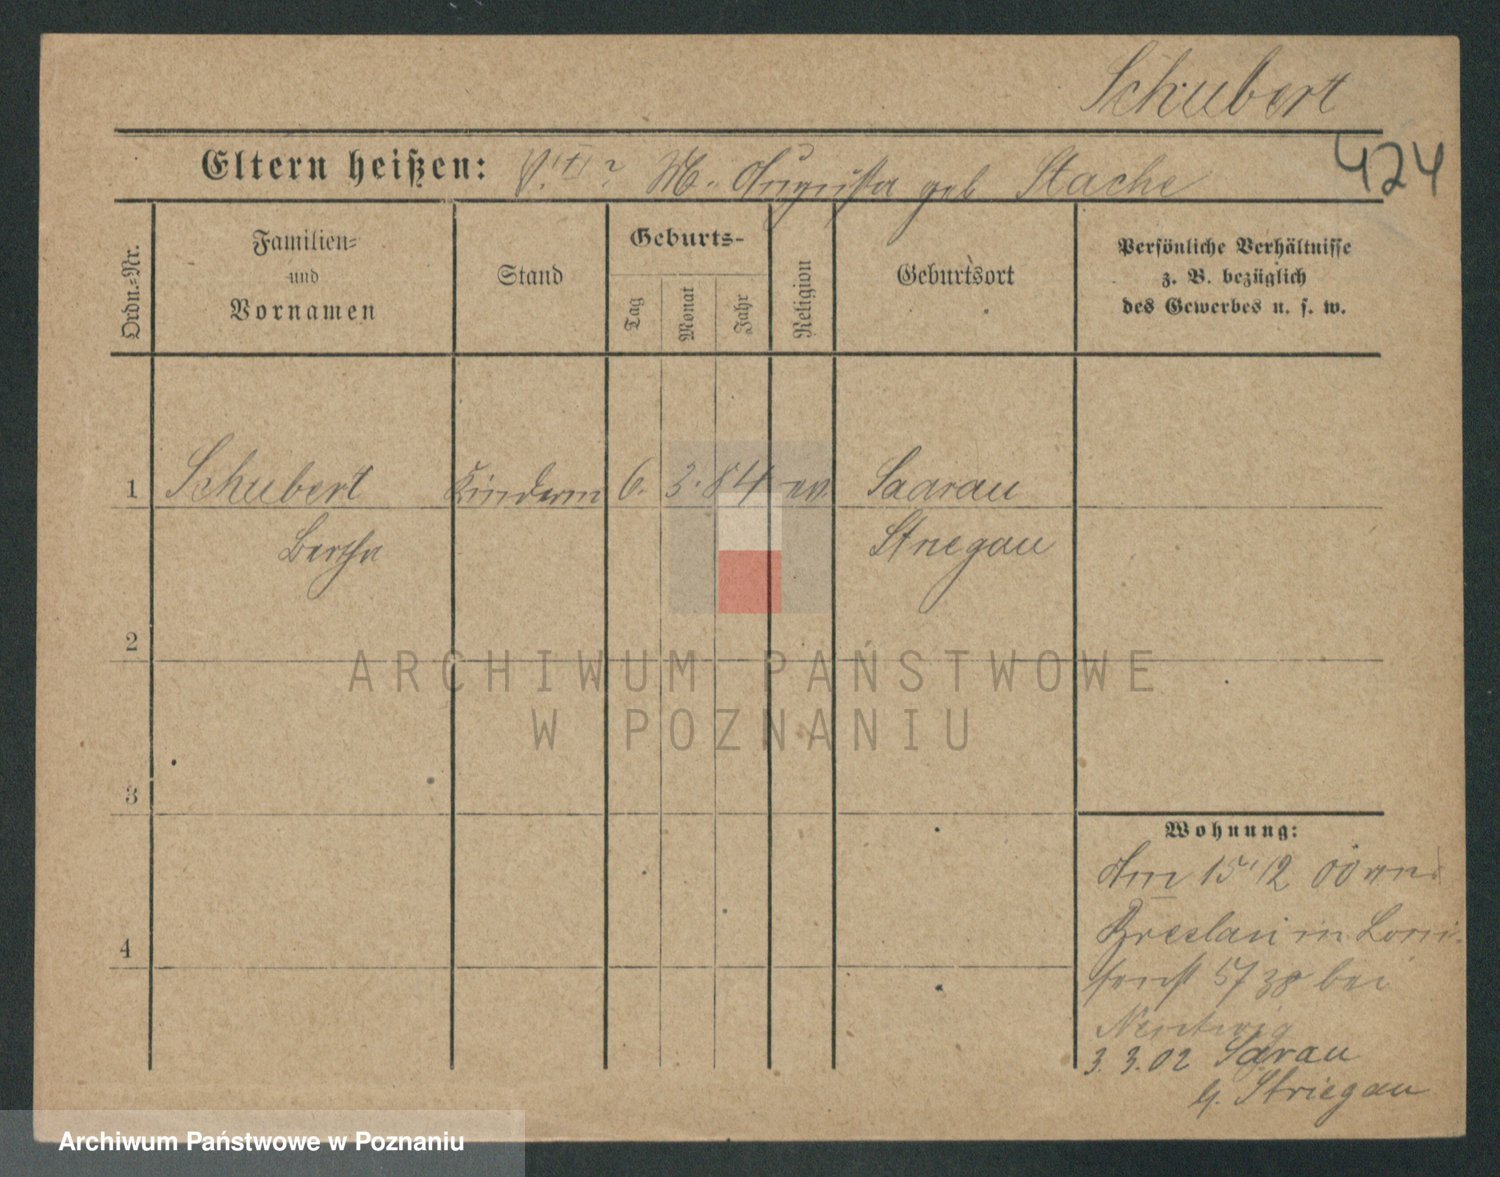 Schubert
424
Eltern heißen: M. Augusta geb Stache
Ordn.-Nr.
Familien-
und
Vornamen
Stand
Geburts-
Tag
Monat
Jahr
Religion
Geburtsort
Persönliche Verhältnisse
z. B. bezüglich
des Gewerbes u. s. w.
1 Schubert Kinderm 6. 3. 84 ev. Saarau
Bertha Striegau
2
3
4
Wohnung:
Am 15/12 00 von
Breslau in Loui-
senst 37/38 bei
Nentwig
3. 3. 02 Sarau
b. Striegau
ARCHIWUM PAŃSTWOWE
W POZNANIU
Archiwum Państwowe w Poznaniu